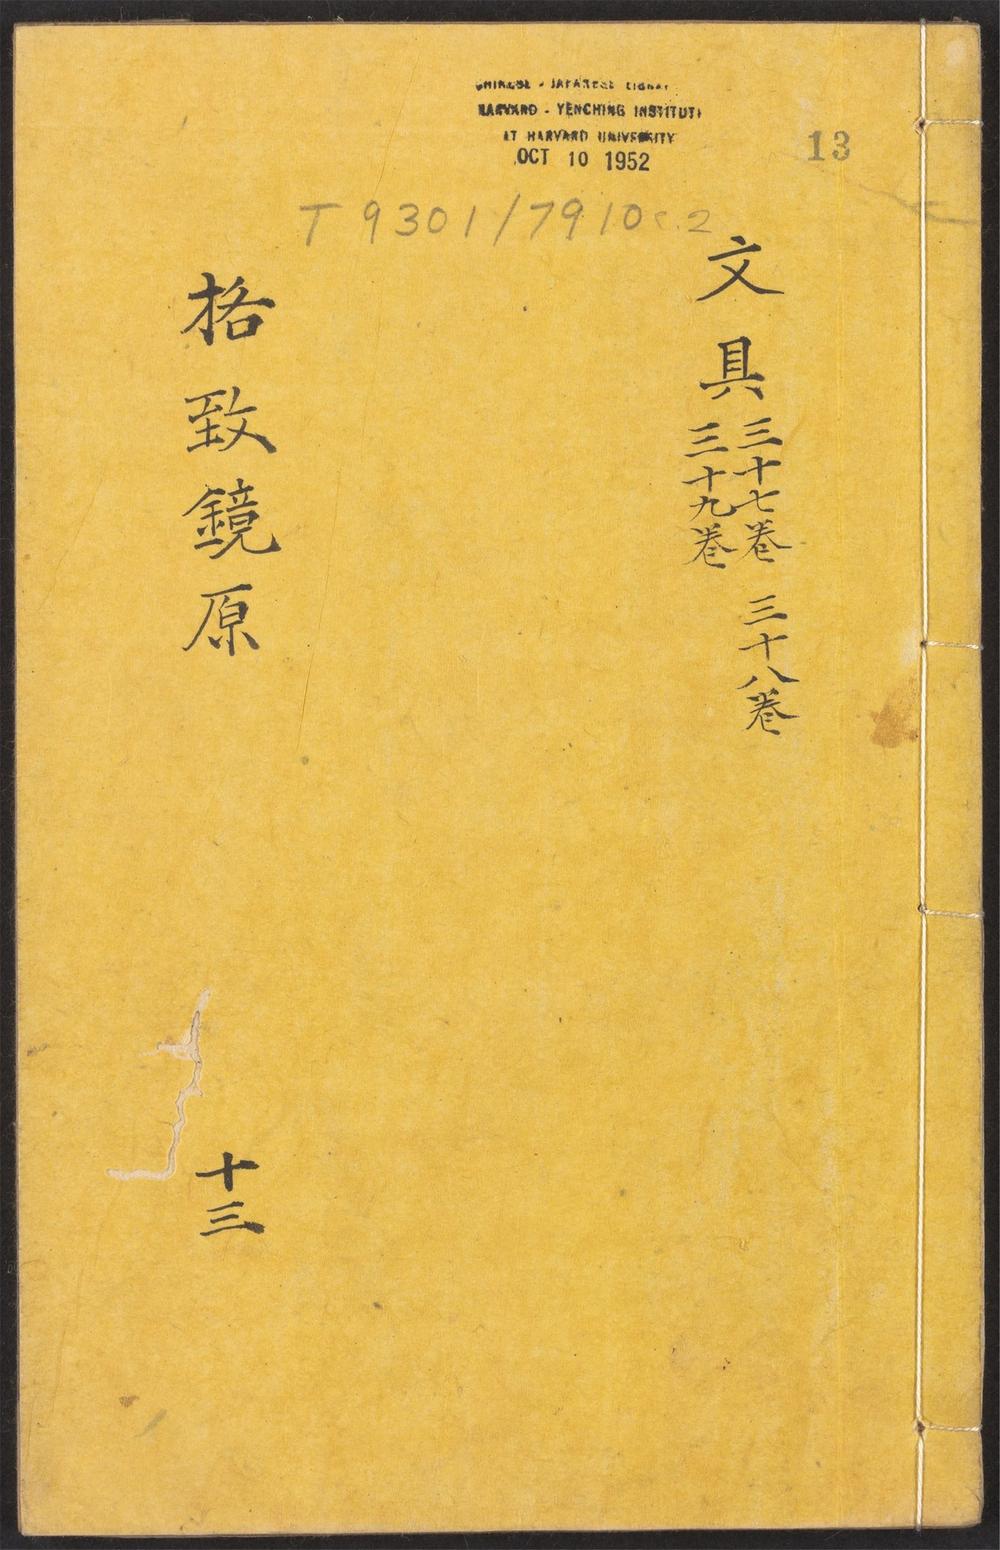 CHINESE - JAPANESE LIBRARY
HARVARD - YENCHING INSTITUTE
AT HARVARD UNIVERSITY
OCT 10 1952
13
T 9301/7910 c.2
文具
三十七卷 三十八卷
三十九卷
格致鏡原
十三